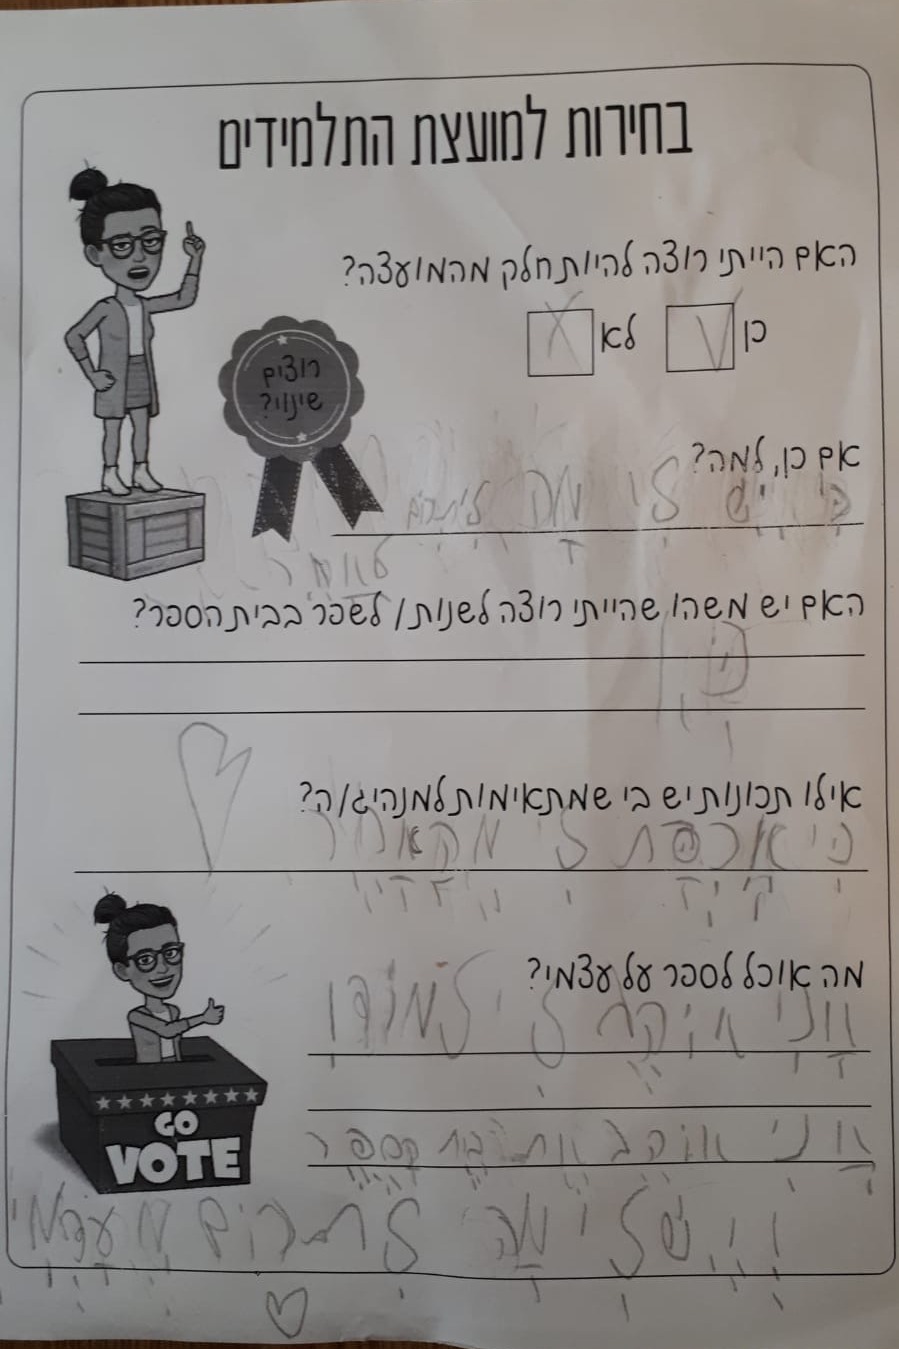 בחירות למועצת התלמידים
האם הייתי רוצה להיות חלק מהמועצה?
כן לא
רוצים
שינוי?
אם כן, למה?
כי יש לי מה לתרום
האם יש משהו שהייתי רוצה לשנות/ לשפר בבית הספר?
אילו תכונות יש בי שמתאימות למנהיג/ה?
כי אכפת לי
מה אוכל לספר על עצמי?
אני לי
אני אוהב את בית
וייש לי מה לתרום מעצמי
GO
VOTE